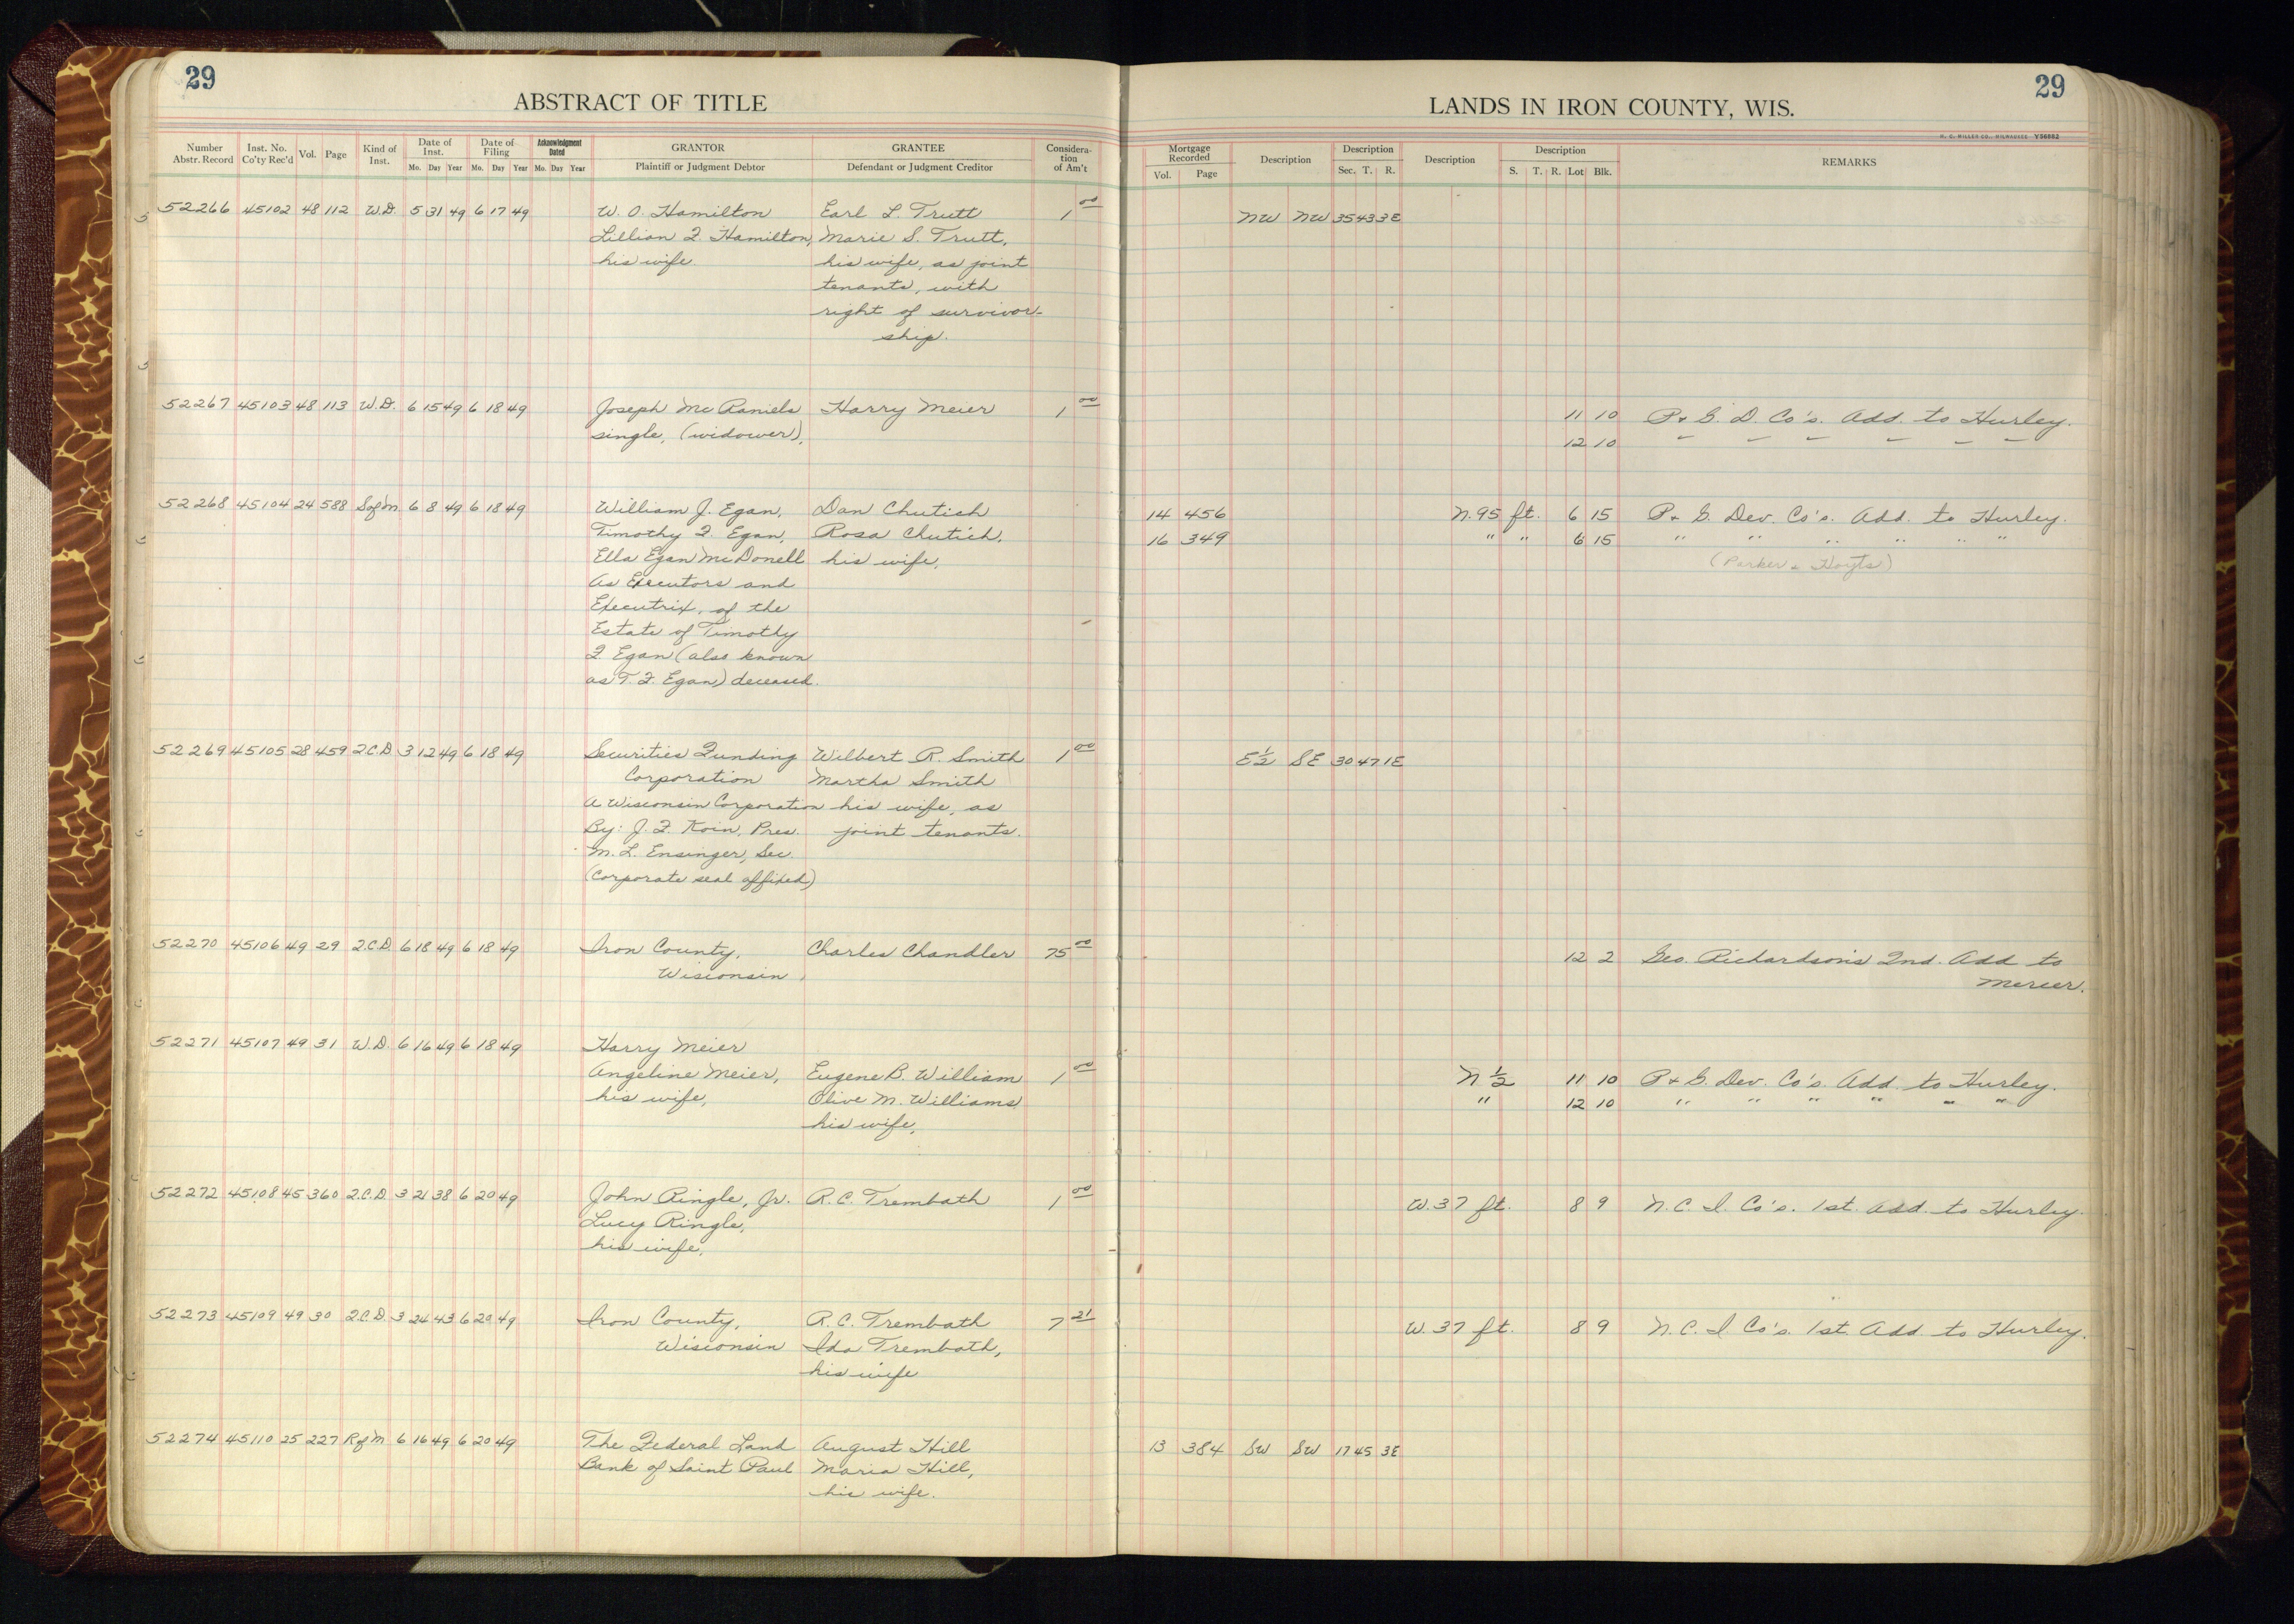 29
29
ABSTRACT OF TITLE
LANDS IN IRON COUNTY, WIS.
H. C. MILLER CO., MILWAUKEE Y56882
Number Abstr. Record
Inst. No. Co'ty Rec'd
Vol.
Page
Kind of Inst.
Date of Inst.
Mo. Day Year
Date of Filing
Mo. Day Year
Acknowledgment Dated
Mo. Day Year
GRANTOR
Plaintiff or Judgment Debtor
GRANTEE
Defendant or Judgment Creditor
Consideration of Am't
Mortgage Recorded
Vol. Page
Description
Description
Sec. T. R.
Description
Description
S. T. R. Lot Blk.
REMARKS
52266 45102 48 112 W.D. 5 31 49 6 17 49 W. O. Hamilton Earl L. Trutt 1 00 NW NW 35 43 3E
Lillian F. Hamilton, Marie S. Trutt,
his wife. his wife, as joint
tenants, with
right of survivor-
ship.
52267 45103 48 113 W.D. 6 15 49 6 18 49 Joseph McRaniels Harry Meier 1 00 11 10 P. & G. D. Co's. Add. to Hurley.
single, (widower), 12 10 " " " " " "
52268 45104 24 588 S of M 6 8 49 6 18 49 William J. Egan, Dan Chutich 14 456 N. 95 ft. 6 15 P. & G. Dev. Co's. Add. to Hurley.
Timothy F. Egan, Rosa Chutich, 16 349 " " 6 15 " " " " " "
Ella Egan McDonell his wife, (Parker & Hoyts)
As Executors and
Executrix, of the
Estate of Timothy
F. Egan (also known
as T. F. Egan) deceased.
52269 45105 28 459 Q.C.D. 3 12 49 6 18 49 Securities Funding Wilbert R. Smith 1 00 E½ SE 30 47 1E
Corporation Martha Smith
A Wisconsin Corporation his wife, as
By: J. F. Koin, Pres. joint tenants.
M. L. Ensinger, Sec.
(Corporate seal affixed)
52270 45106 49 29 Q.C.D. 6 18 49 6 18 49 Iron County, Charles Chandler 75 00 12 2 Geo. Richardson's 2nd. Add to
Wisconsin, Mercer.
52271 45107 49 31 W.D. 6 16 49 6 18 49 Harry Meier
Angeline Meier, Eugene B. William 1 00 N ½ 11 10 P & G. Dev. Co's. Add. to Hurley.
his wife, Olive M. Williams " 12 10 " " " " " "
his wife,
52272 45108 45 360 Q.C.D. 3 21 38 6 20 49 John Ringle, Jr. R. C. Trembath 1 00 W. 37 ft. 8 9 N. C. I. Co's. 1st. Add. to Hurley.
Lucy Ringle,
his wife,
52273 45109 49 30 Q.C.D. 3 24 43 6 20 49 Iron County, R. C. Trembath 7 21 W. 37 ft. 8 9 N. C. I. Co's. 1st. Add. to Hurley.
Wisconsin Ida Trembath,
his wife
52274 45110 25 227 R of M 6 16 49 6 20 49 The Federal Land August Hill 13 384 SW SW 17 45 3E
Bank of Saint Paul Maria Hill,
his wife.